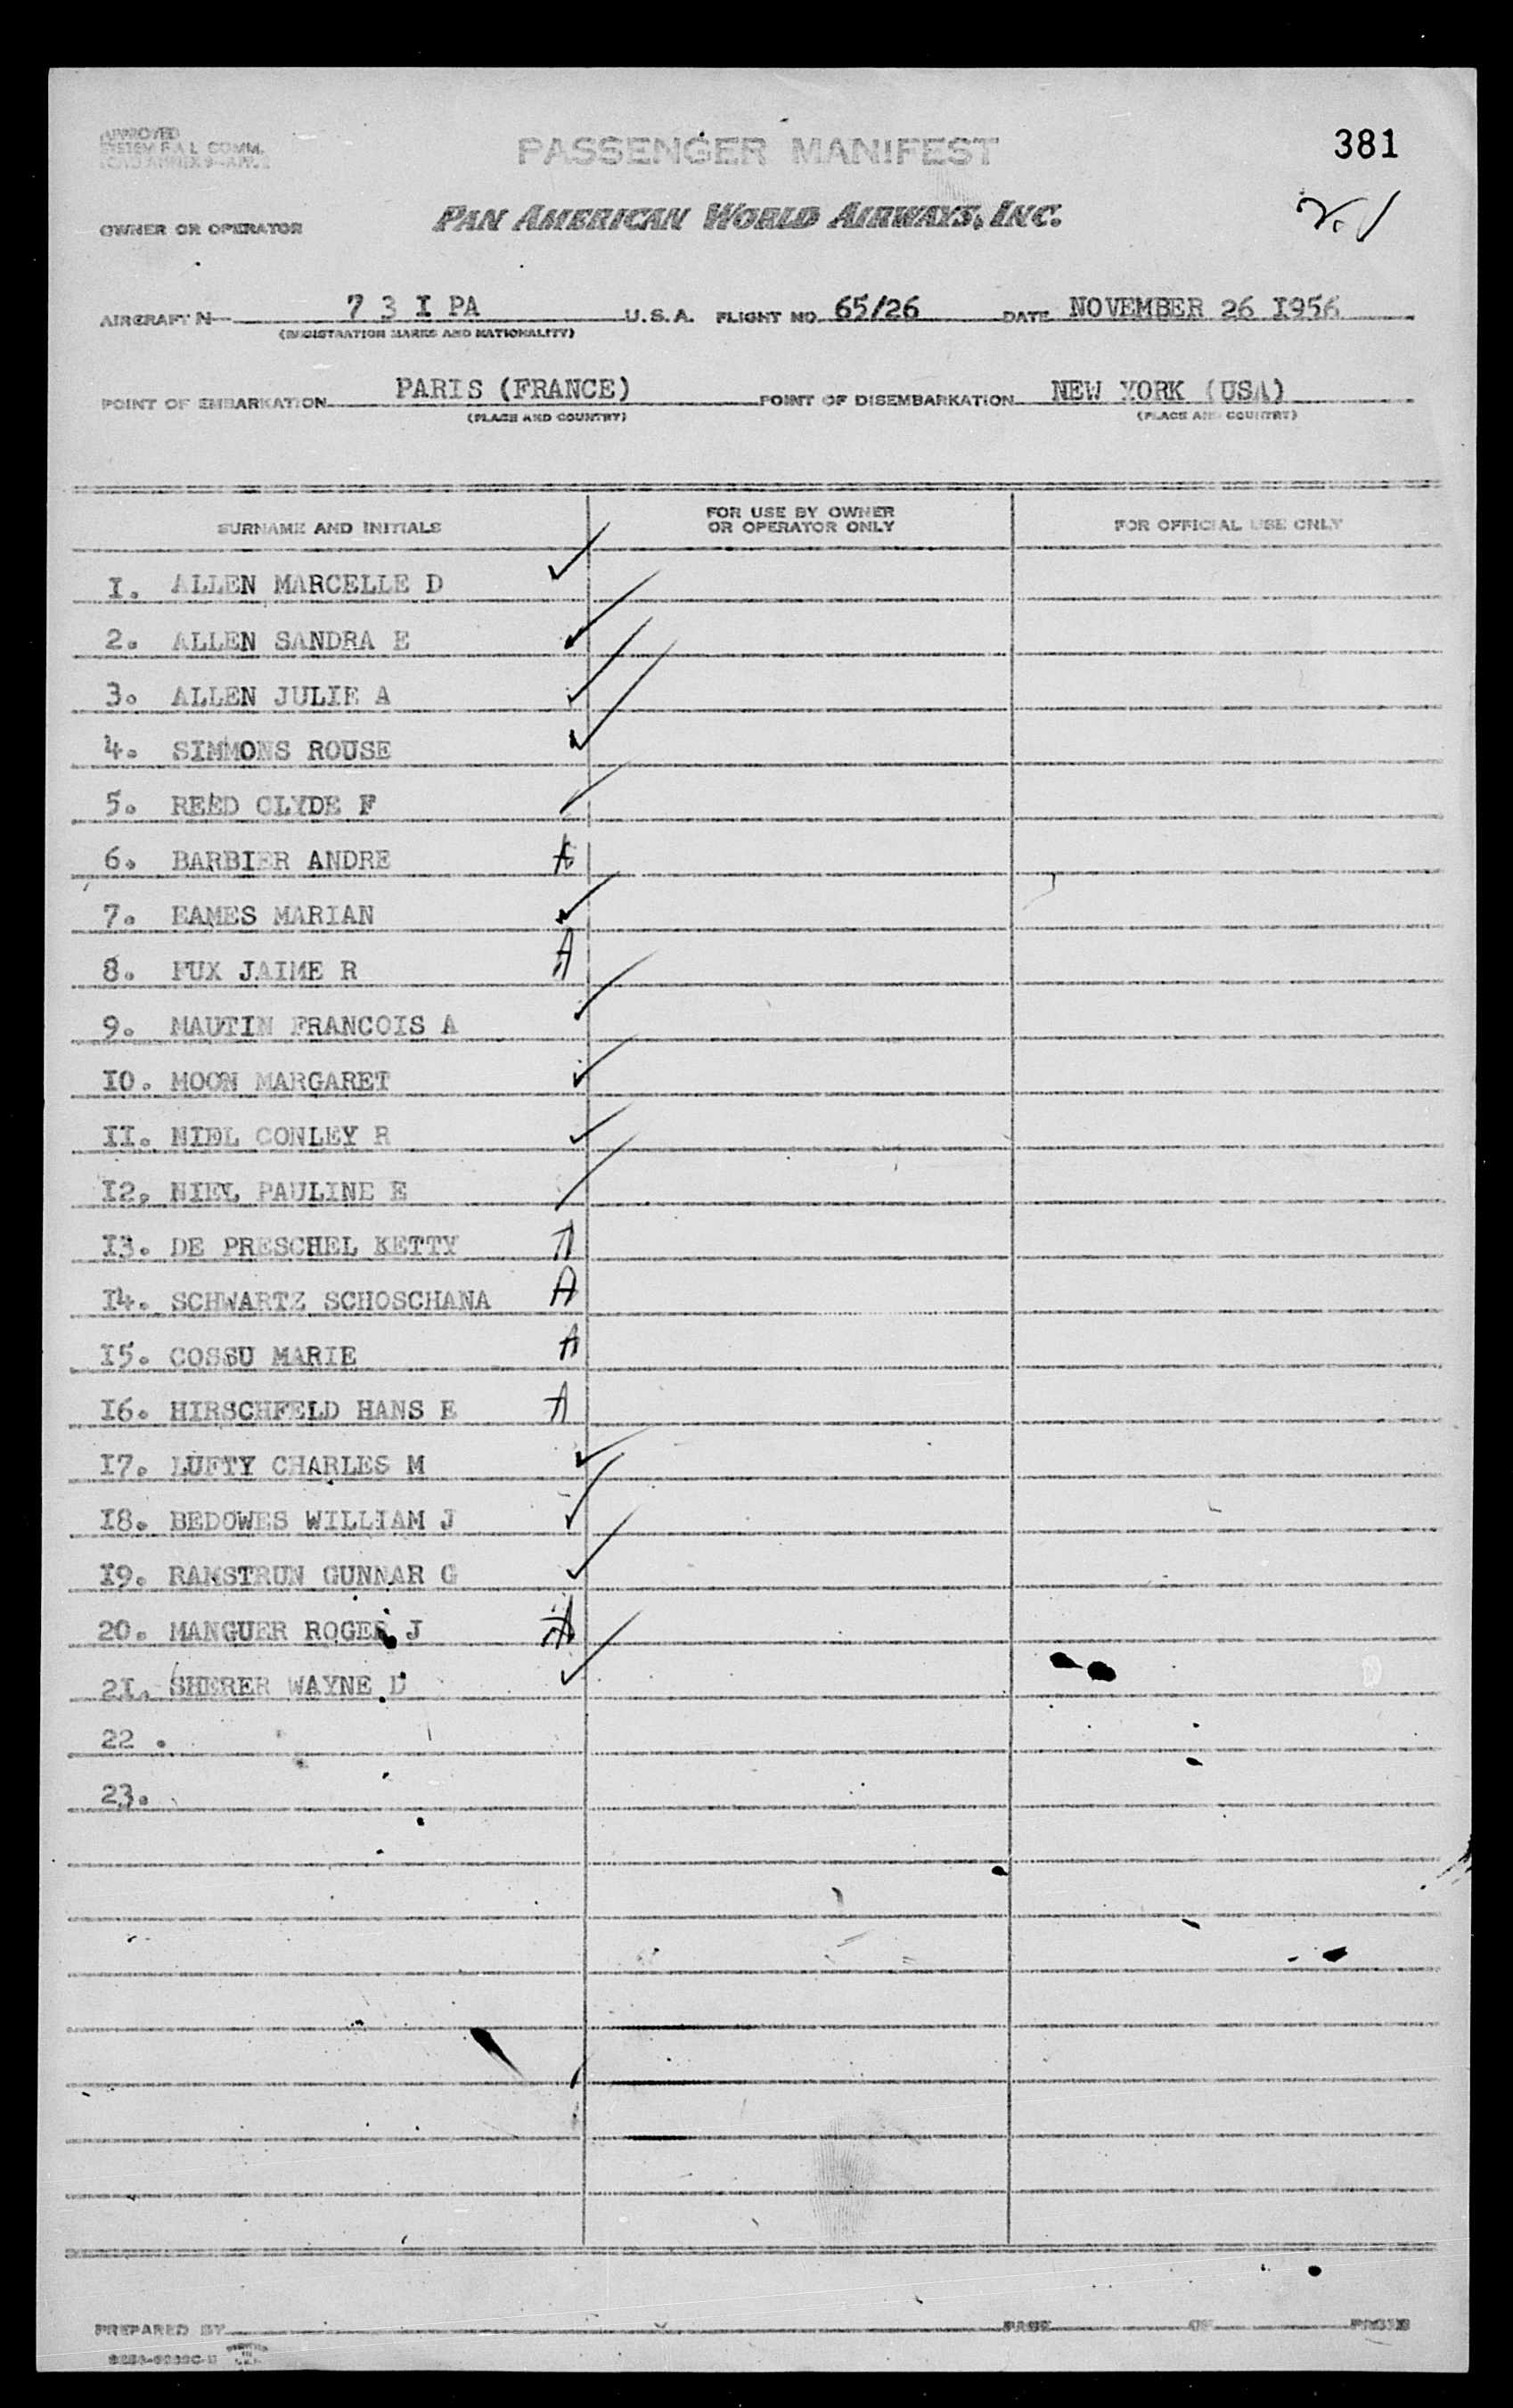 APPROVED
SYSTEM F.A.L. COMM.
PASSENGER MANIFEST
381
OWNER OR OPERATOR
PAN AMERICAN WORLD AIRWAYS, INC.
AIRCRAFT N 7 3 I PA U.S.A. FLIGHT NO. 65/26 DATE NOVEMBER 26 I956
(REGISTRATION MARKS AND NATIONALITY)
POINT OF EMBARKATION PARIS (FRANCE) POINT OF DISEMBARKATION NEW YORK (USA)
(PLACE AND COUNTRY) (PLACE AND COUNTRY)
SURNAME AND INITIALS
FOR USE BY OWNER
OR OPERATOR ONLY
FOR OFFICIAL USE ONLY
I. ALLEN MARCELLE D ✓
2. ALLEN SANDRA E ✓
3. ALLEN JULIE A ✓
4. SIMMONS ROUSE ✓
5. REED CLYDE F ✓
6. BARBIER ANDRE A
7. EAMES MARIAN ✓
8. FUX JAIME R A
9. MAUTIN FRANCOIS A ✓
I0. MOON MARGARET ✓
II. NIEL CONLEY R ✓
I2. NIEL PAULINE E ✓
I3. DE PRESCHEL KETTY A
I4. SCHWARTZ SCHOSCHANA A
I5. COSSU MARIE A
I6. HIRSCHFELD HANS E A
I7. LUFTY CHARLES M ✓
I8. BEDOWES WILLIAM J ✓
I9. RAMSTRUN GUNNAR G ✓
20. MANGUER ROGER J A
2I. SHERER WAYNE D ✓
22 .
23.
PREPARED BY PAGE OF PAGES